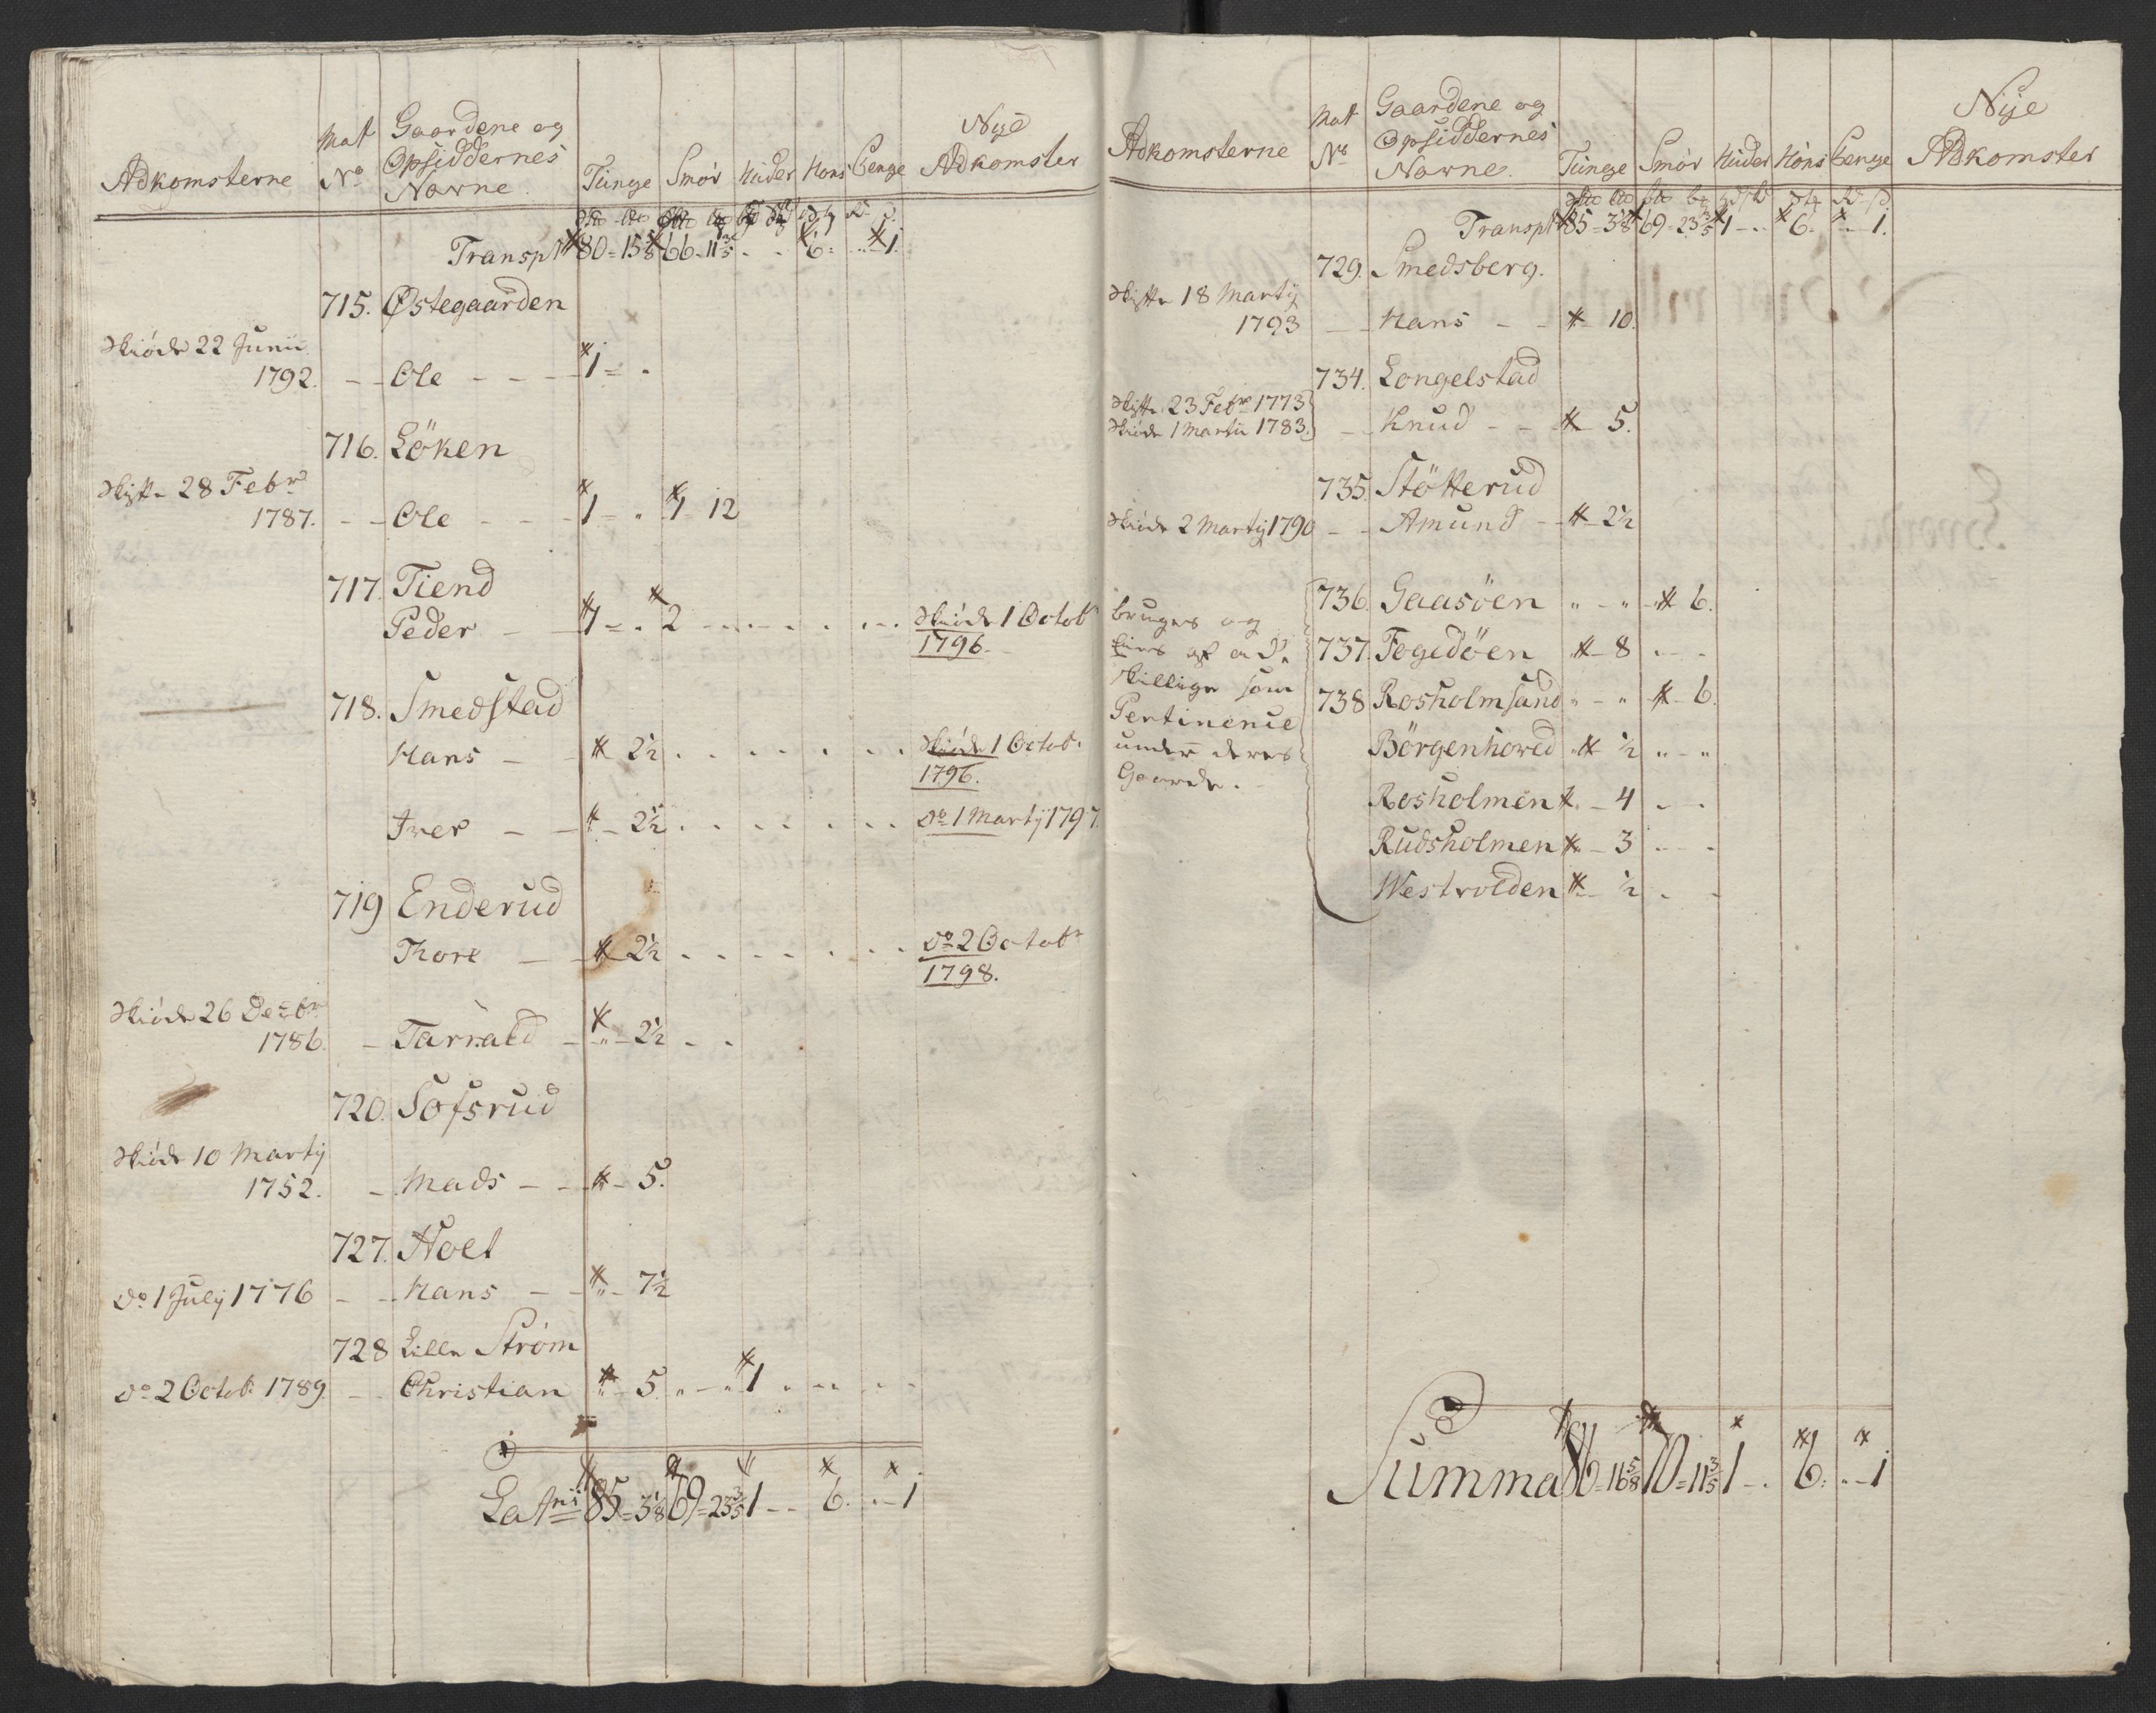 Adkomsterne | Mat No | Gaardene og Opsiddernes Navne. | Tunge | Smør | Huder | Hons | Penge | Nye Adkomster
Transpt 80 = 15 5/8 66 - 11 3/5 - . 6 = .. 1.
715. Østegaarden
Skiøde 22 Junii
1792. - - Ole - - - 1 = .
716. Löken
Skifte 28 Febr
1787. - - Ole - - - 1 - . 1 12
717. Tiend
Peder - - 1 = . 2 - - - - - - Skiøde 1 Octob
1796.
718. Smedstad
Hans - - 2½ . . . . . . Skiøde 1 Octob.
1796.
Iver - - 2½ . . . . . . Do 1 Martij 1797.
719 Enderud
Thore - - 2½ . . . . . . Do 2 Octobr
1798.
Skiøde 26 Decbr
1786. - Tarrald - - 2½ - -
720. Sofsrud
Skiøde 10 Martij
1752. - Mads - - - 5.
727. Noet
Do 1 Julij 1776 - - Hans - - " - 7½
728 Lille Strøm
Do 2 Octob. 1789. - - Christian " - 5. " - " 1 . - - -
Latris 85 = 3 1/8 69 = 23 3/5 1 - - 6. .. - 1
Adkomsterne | Mat No | Gaardene og Opsiddernes Navne. | Tunge | Smør | Huder | Höns | Penge | Nye Adkomster
Transpt 85 = 3 1/8 69 - 23 3/5 1 - .. 6. .. 1.
729. Smedsberg.
Skifte 18 Martij
1793 - - Hans - - - 10.
734. Longelstad
Skifte 23 Febr 1773
Skiøde 1 Martii 1783. - - Knud - - - 5.
735. Stötterud
Skiøde 2 Martij 1790 - - Amund - - 2½
bruges og
eies af ad-
skillige som
Pertinence
under deres
Gaarde. -
736. Gaasöen " - " - 6.
737. Fogedöen - 8 . - -
738 Rosholmsund " - " - 6.
Börgenhoved ½ " - "
Rosholmen - 4 . - .
Rudsholmen - 3 . - -
Westvolden - ½ . -
Summa 86 = 16 5/8 70 = 11 3/5 1 - . 6. .. - 1